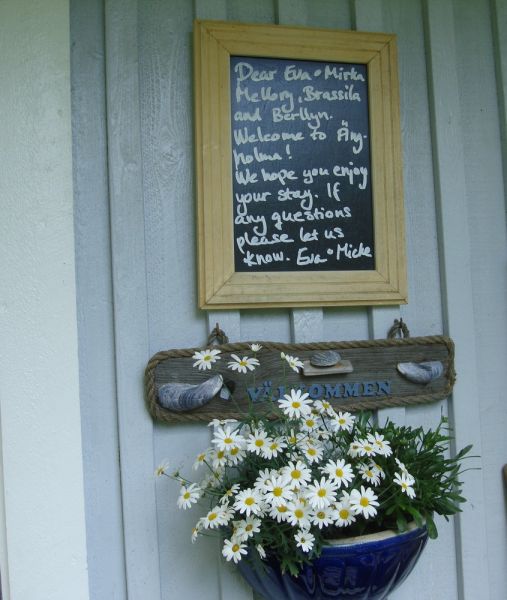 Dear Eva • Mirka
Mellory, Brassila
and Berllyn.
Welcome to Äng-
holma!
We hope you enjoy
your stay. If
any questions
please let us
know. Eva • Micke
VÄLKOMMEN